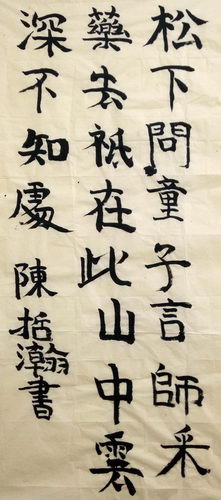 松下問童子言師采
藥去祗在此山中雲
深不知處 陳括瀚書